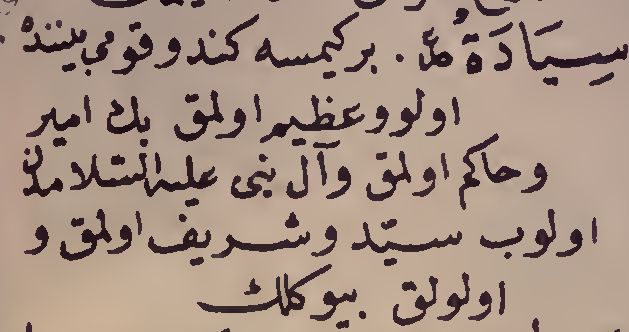 سِيَادَةٌ مدّ. بر كيمسه كندو قومی بيننده
اولو و عظيم اولمق بك امير
و حاكم اولمق و آل نبی عليه السّلامدن
اولوب سيّد و شريف اولمق و
اولولق بيوكلك